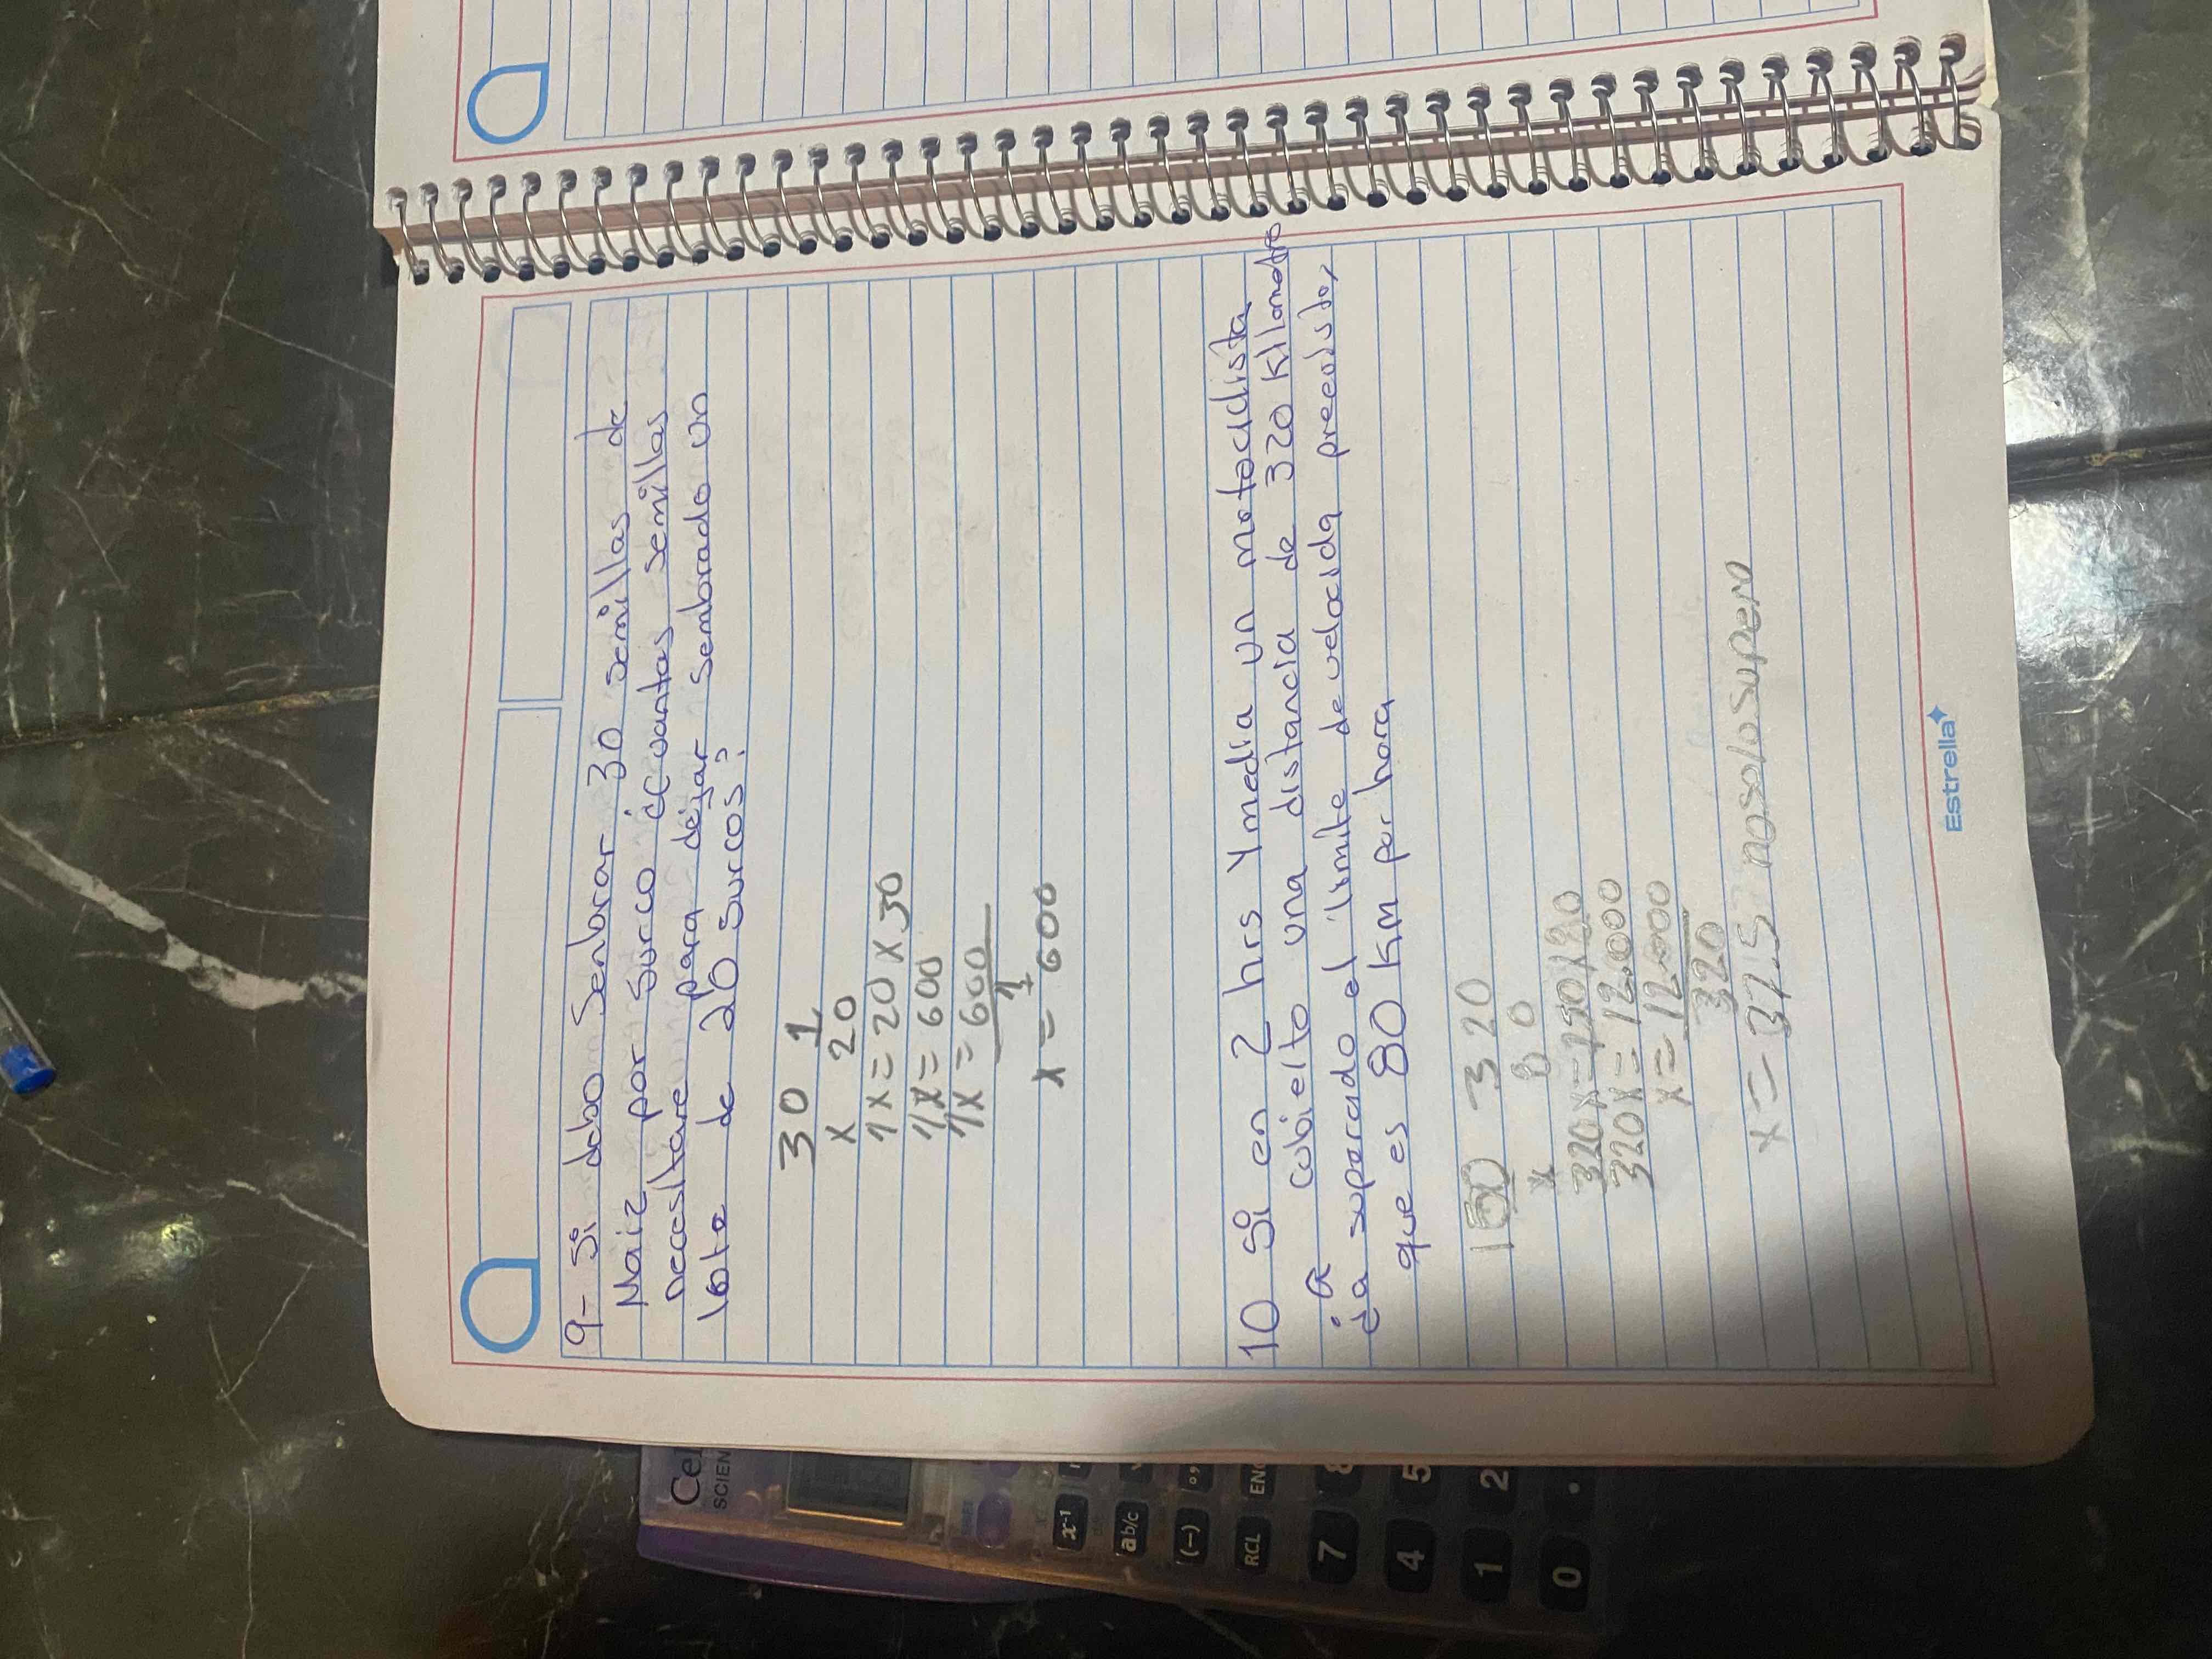 9- Si debo Senbrar 30 semillas de
Maiz por surco ¿Cuantas semillas
necesitare para dejar sembrado un
lote de 20 surcos?
30 1
x 20
1x = 20 x 30
1x = 600
1x = 600
1
x = 600
10 Si en 2 hrs y media un motociclista
a cubielto una distancia de 320 kilometro
¿a superado el limite de velocida preevisto,
que es 80 km por hora
150 320
x 80
320x = 150x80
320x = 12.000
x = 12.000
320
x = 37.5 no solo supero
Estrella
SCIEN
x-1
ab/c
(-)
RCL
ENG
7
4
5
1
2
0
.